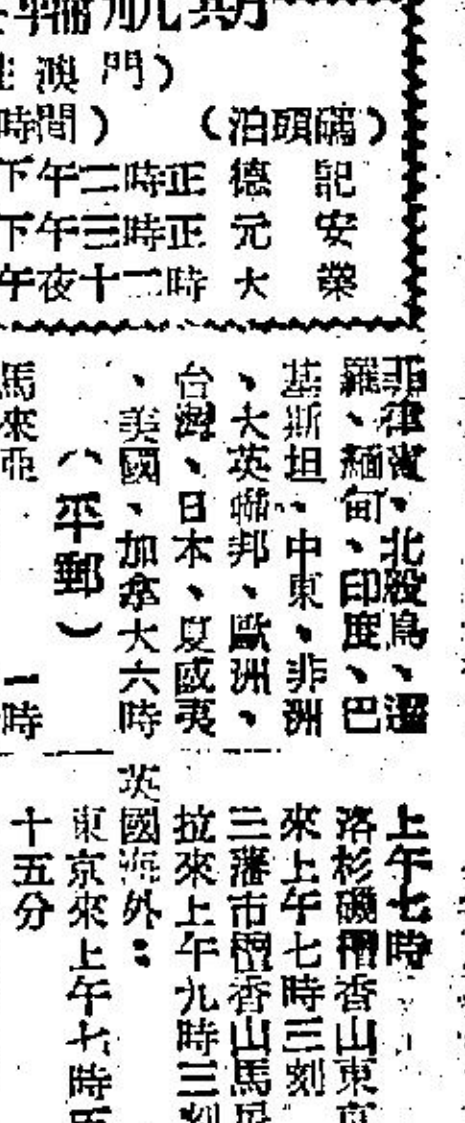 輪航期
澳門）
時間）（泊頭碼）
下午二時正 德記
下午三時正 元安
午夜十二時 大榮
菲律賓、北般鳥、暹
羅、緬甸、印度、巴
基斯坦、中東、非洲
、大英聯邦、歐洲、
台灣、日本、夏威夷
、美國、加拿大六時
（平郵）
馬來亞 一時
上午七時
洛杉磯檀香山東京
來上午七時三刻
三藩市檀香山馬尼
拉來上午九時三刻
英國海外：
東京來上午七時
十五分